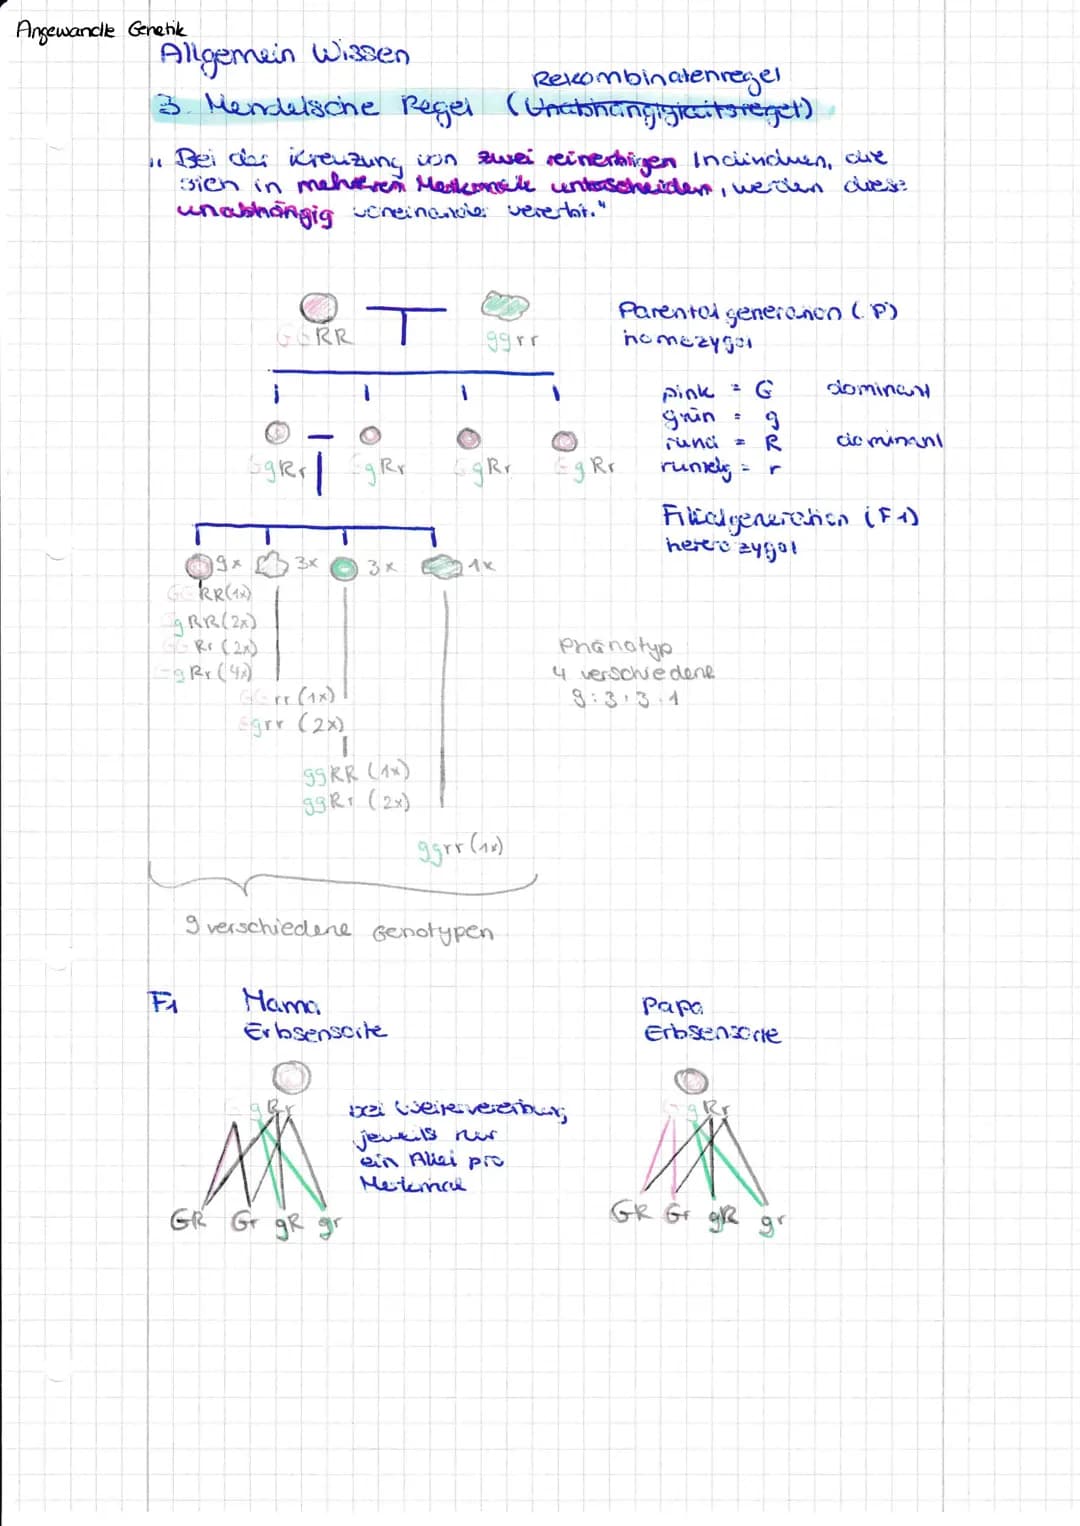 Angewandte Genetik
Allgemein Wissen
Rekombinatenregel
3. Mendelsche Regel (Unabhängigkeitsregel)
"Bei der Kreuzung von zwei reinerbigen Individuen, die
sich in mehreren Merkmale unterscheiden, werden diese
unabhängig voneinander vererbt."
GGRR
ggrr
Parentalgeneration (P)
homozygot
pink = G dominant
grün = g
rund = R dominant
runzelig = r
GgRr GgRr GgRr GgRr
Filialgeneration (F1)
heterozygot
9x 3x 3x 1x
GGRR (1x)
GgRR (2x)
GGRr (2x)
GgRr (4x)
GGrr (1x)
Ggrr (2x)
ggRR (1x)
ggRr (2x)
ggrr (1x)
Phänotyp
4 verschiedene
9:3:3:1
9 verschiedene Genotypen
F1 Mama
Erbsensorte
Papa
Erbsensorte
GgRr
GgRr
bei Weitervererbung
jeweils nur
ein Allel pro
Merkmal
GR Gr gR gr
GR Gr gR gr